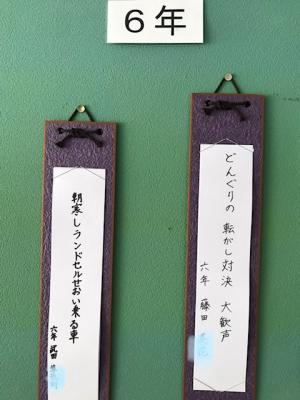 6年
どんぐりの 転がし対決 大歓声
六年 藤田
朝寒しランドセルせおい乗る車
六年 武田